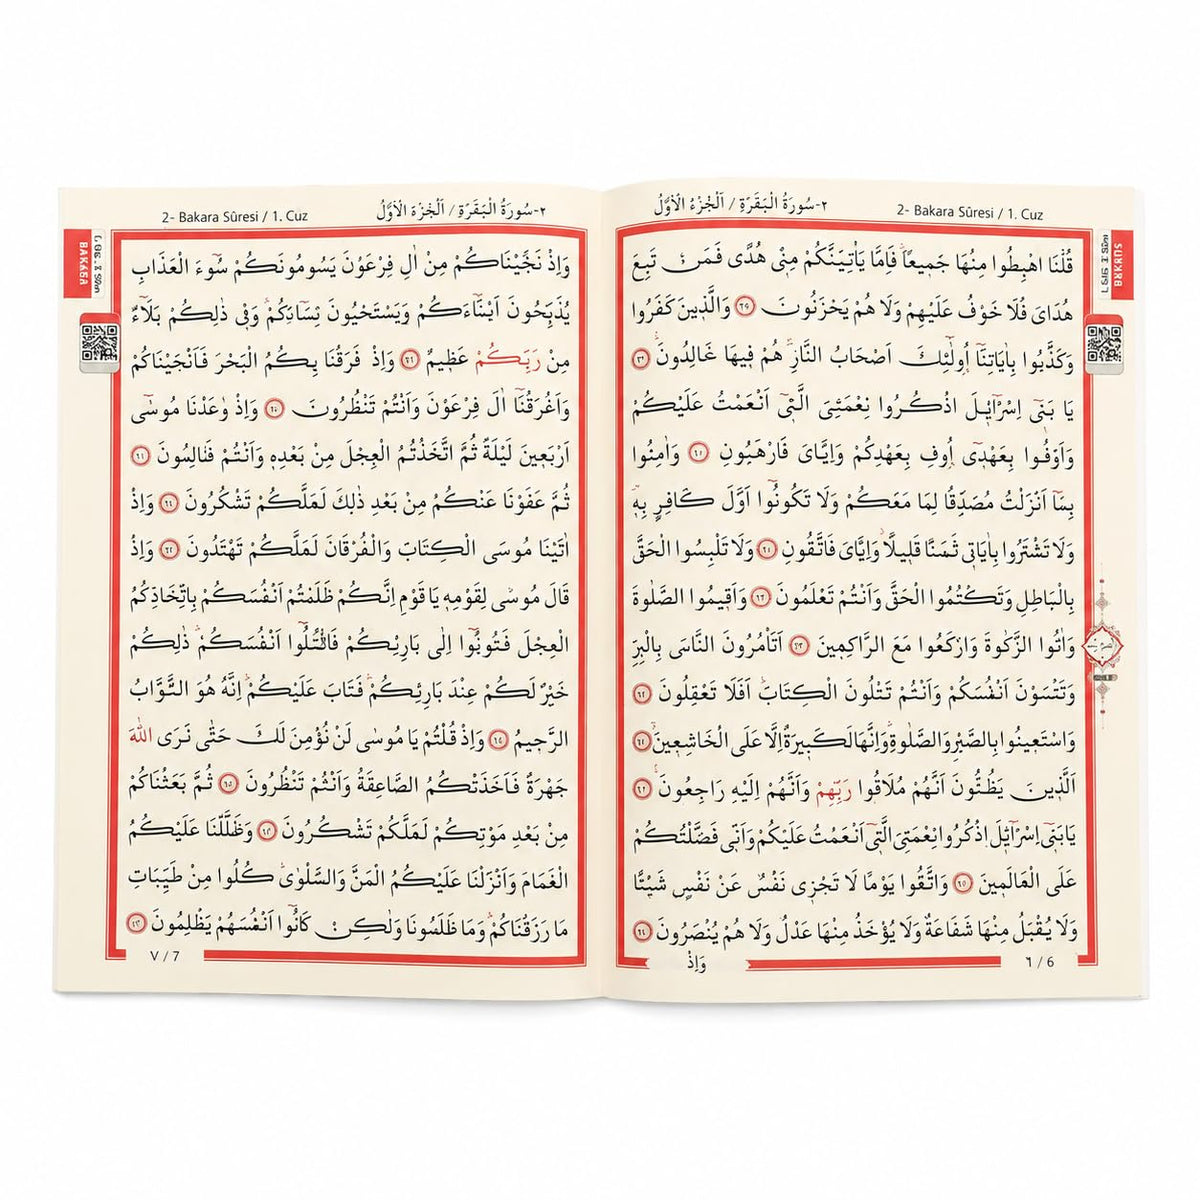 ٢-سُورَةُ الْبَقَرَةِ / اَلْجُزْءُ الْاَوَّلُ 2- Bakara Sûresi / 1. Cuz
قُلْنَا اهْبِطُوا مِنْهَا جَمِيعاً فَاِمَّا يَاْتِيَنَّكُمْ مِنّٖى هُدًى فَمَنْ تَبِعَ
هُدَاىَ فَلَا خَوْفٌ عَلَيْهِمْ وَلَا هُمْ يَحْزَنُونَ وَالَّذٖينَ كَفَرُوا
وَكَذَّبُوا بِاٰيَاتِنَٓا اُولٰٓئِكَ اَصْحَابُ النَّارِ هُمْ فٖيهَا غَالِدُونَ
يَا بَنٖٓى اِسْرَٓائٖلَ اذْكُرُوا نِعْمَتِىَ الَّتٖٓى اَنْعَمْتُ عَلَيْكُمْ
وَاَوْفُوا بِعَهْدٖٓى اُوفِ بِعَهْدِكُمْ وَاِيَّاىَ فَارْهَبُونِ ٤٠ وَاٰمِنُوا
بِمَٓا اَنْزَلْتُ مُصَدِّقًا لِمَا مَعَكُمْ وَلَا تَكُونُٓوا اَوَّلَ كَافِرٍ بِهٖ
وَلَا تَشْتَرُوا بِاٰيَاتٖى ثَمَنًا قَلٖيلًا وَاِيَّاىَ فَاتَّقُونِ ٤١ وَلَا تَلْبِسُوا الْحَقَّ
بِالْبَاطِلِ وَتَكْتُمُوا الْحَقَّ وَاَنْتُمْ تَعْلَمُونَ وَاَقٖيمُوا الصَّلٰوةَ
وَاٰتُوا الزَّكٰوةَ وَارْكَعُوا مَعَ الرَّاكِمٖينَ ٤٣ اَتَاْمُرُونَ النَّاسَ بِالْبِرِّ
وَتَنْسَوْنَ اَنْفُسَكُمْ وَاَنْتُمْ تَتْلُونَ الْكِتَابَ اَفَلَا تَعْقِلُونَ
وَاسْتَعٖينُوا بِالصَّبْرِ وَالصَّلٰوةِ وَاِنَّهَا لَكَبٖيرَةٌ اِلَّا عَلَى الْخَاشِعٖينَ
اَلَّذٖينَ يَظُنُّونَ اَنَّهُمْ مُلَاقُوا رَبِّهِمْ وَاَنَّهُمْ اِلَيْهِ رَاجِعُونَ
يَا بَنٖٓى اِسْرَٓائٖلَ اذْكُرُوا نِعْمَتِىَ الَّتٖٓى اَنْعَمْتُ عَلَيْكُمْ وَاَنّٖى فَضَّلْتُكُمْ
عَلَى الْعَالَمٖينَ وَاتَّقُوا يَوْمًا لَا تَجْزٖى نَفْسٌ عَنْ نَفْسٍ شَيْئًا
وَلَا يُقْبَلُ مِنْهَا شَفَاعَةٌ وَلَا يُؤْخَذُ مِنْهَا عَدْلٌ وَلَا هُمْ يُنْصَرُونَ
وَاِذْ ٦ / 6
2- Bakara Sûresi / 1. Cuz ٢-سُورَةُ الْبَقَرَةِ / اَلْجُزْءُ الْاَوَّلُ
وَاِذْ نَجَّيْنَاكُمْ مِنْ اٰلِ فِرْعَوْنَ يَسُومُونَكُمْ سُٓوءَ الْعَذَابِ
يُذَبِّحُونَ اَبْنَٓاءَكُمْ وَيَسْتَحْيُونَ نِسَٓاءَكُمْ وَفٖى ذٰلِكُمْ بَلَٓاءٌ
مِنْ رَبِّكُمْ عَظٖيمٌ وَاِذْ فَرَقْنَا بِكُمُ الْبَحْرَ فَاَنْجَيْنَاكُمْ
وَاَغْرَقْنَٓا اٰلَ فِرْعَوْنَ وَاَنْتُمْ تَنْظُرُونَ وَاِذْ وٰعَدْنَا مُوسٰٓى
اَرْبَعٖينَ لَيْلَةً ثُمَّ اتَّخَذْتُمُ الْعِجْلَ مِنْ بَعْدِهٖ وَاَنْتُمْ
ثُمَّ عَفَوْنَا عَنْكُمْ مِنْ بَعْدِ ذٰلِكَ لَمَلَّكُمْ تَشْكُرُونَ وَاِذْ
اٰتَيْنَا مُوسَى الْكِتَابَ وَالْفُرْقَانَ لَمَلَّكُمْ تَهْتَدُونَ وَاِذْ
قَالَ مُوسٰى لِقَوْمِهٖ يَا قَوْمِ اِنَّكُمْ ظَلَمْتُمْ اَنْفُسَكُمْ بِاتِّخَاذِكُمُ
الْعِجْلَ فَتُوبُٓوا اِلٰى بَارِئِكُمْ فَاقْتُلُٓوا اَنْفُسَكُمْ ذٰلِكُمْ
خَيْرٌ لَكُمْ عِنْدَ بَارِئِكُمْ فَتَابَ عَلَيْكُمْ اِنَّهُ هُوَ التَّوَّابُ
الرَّحٖيمُ وَاِذْ قُلْتُمْ يَا مُوسٰى لَنْ نُؤْمِنَ لَكَ حَتّٰى نَرَى اللّٰهَ
جَهْرَةً فَاَخَذَتْكُمُ الصَّاعِقَةُ وَاَنْتُمْ تَنْظُرُونَ ثُمَّ بَعَثْنَاكُمْ
مِنْ بَعْدِ مَوْتِكُمْ لَمَلَّكُمْ تَشْكُرُونَ وَظَلَّلْنَا عَلَيْكُمُ
الْغَمَامَ وَاَنْزَلْنَا عَلَيْكُمُ الْمَنَّ وَالسَّلْوٰى كُلُوا مِنْ طَيِّبَاتِ
مَا رَزَقْنَاكُمْ وَمَا ظَلَمُونَا وَلٰكِنْ كَانُٓوا اَنْفُسَهُمْ يَظْلِمُونَ
٧ / 7